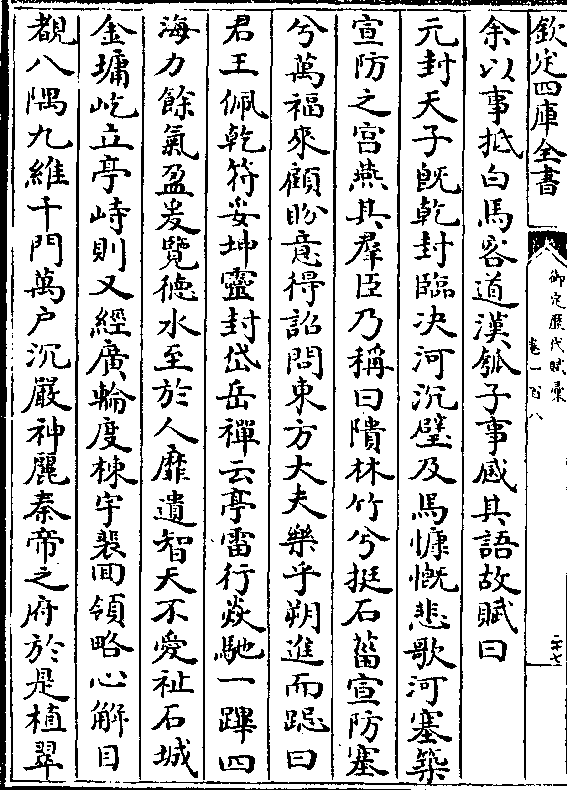 欽定四庫全書
御定歷代賦彙
卷一百八
二十七
余以事抵白馬客道漢瓠子事感其語故賦曰
元封天子既乾封臨決河沉璧及馬慷慨悲歌河塞築
宣防之宫燕其羣臣乃稱曰隤林竹兮揵石菑宣防塞
兮萬福來顧盼意得詔問東方大夫樂乎朔進而跽曰
君王佩乾符妥坤靈封岱岳禪云亭雷行焱馳一蹕四
海力餘氣盈爰覽徳水至於人靡遺智天不愛祉石城
金墉屹立亭峙則又經廣輪度棟宇裴回領略心解目
覩八隅九維千門萬户沉嚴神麗秦帝之府於是植翠